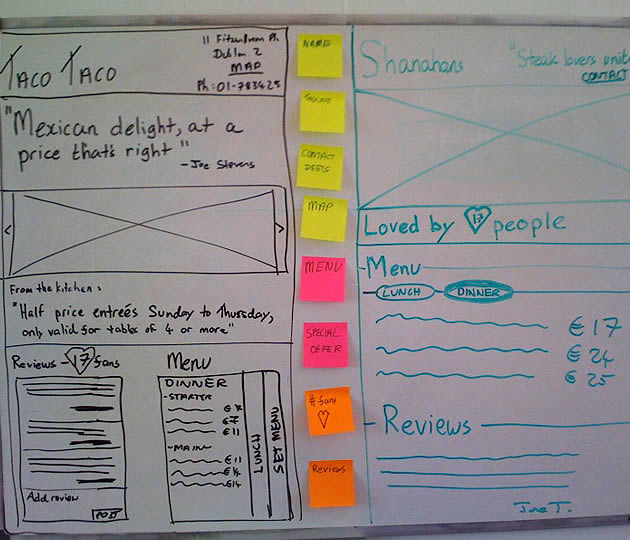 TACO TACO
Dublin 2
MAP
Ph: 01-783425
"Mexican delight, at a
price that's right"
- Joe Stevens
<
>
From the kitchen:
"Half price entreés Sunday to Thursday,
only valid for tables of 4 or more"
Reviews - 17 fans
Add review
POST
Menu
DINNER
- STARTER
€7
€7
€11
- MAIN
€11
€14
€14
LUNCH
SET MENU
NAME
TAGLINE
CONTACT
DEETS
MAP
MENU
SPECIAL
OFFER
# fans
Reviews
Shanahans
"Steak lovers
CONTACT
Loved by 17 people
Menu
LUNCH
DINNER
€17
€24
€25
Reviews